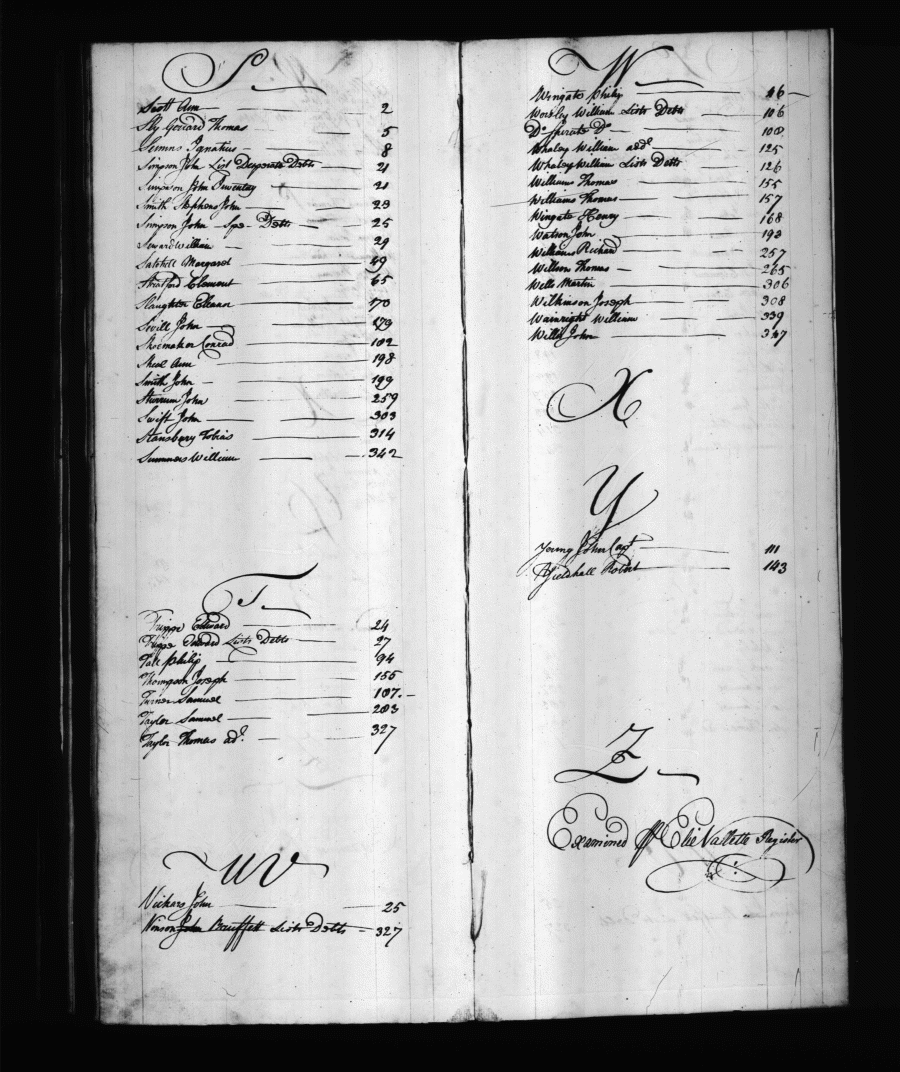 S
Scott Ann 2
Sly Gerrard Thomas 5
Semns Ignatius 8
Simpson John List Desperate Debts 21
Simpson John Inventay 21
Smith Stephens John 23
Simpson John Spe Debts 25
Seward William 29
Satchell Margaret 49
Stratford Clement 65
Slaughter Elleanr 170
Sevill John 179
Shoemaker Conrad 192
Sheal Ann 198
Smith John 199
Sturrum John 259
Swift John 303
Stansbury Tobias 314
Summers William 342
T
Trippe Edward 24
Trippe Edward Lists Debts 27
Tall Philip 94
Thompson Joseph 155
Turner Samuel 187
Taylor Samuel 203
Taylor Thomas ad. 327
UV
Vickars John 25
Vinson John Lists Debts 327
W
Wingate Philip 46
Worsley William Lists Debts 106
Do Sperate Do 108
Whaley William add. 125
Whaley William Lists Debts 126
Williams Thomas 155
Williams Thomas 157
Wingate Henry 168
Watson John 193
Williams Richard 257
Willson Thomas 265
Wells Martin 306
Wilkinson Joseph 308
Wainright William 339
Willis John 347
X
Y
Young John Capt 111
Yieldhall Robert 143
Z
Examined pr Elie Vallette Register